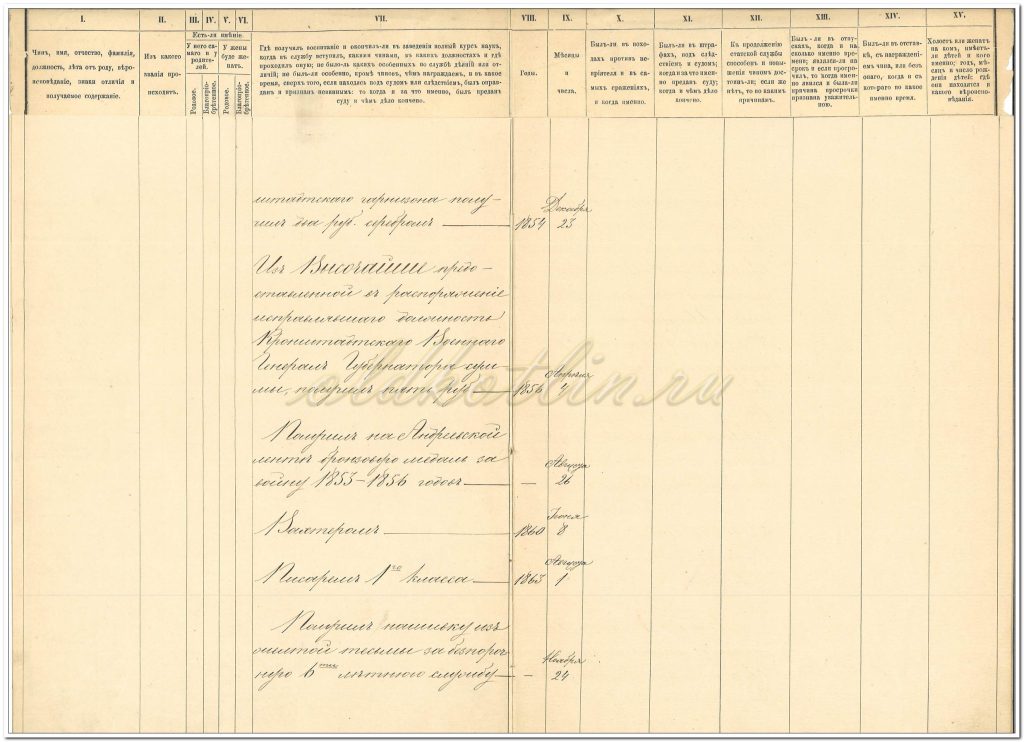 I.
II.
III.
IV.
V.
VI.
VII.
VIII.
IX.
X.
XI.
XII.
XIII.
XIV.
XV.
Чинъ, имя, отчество, фамилія,
должность, лѣта отъ роду, вѣро-
исповѣданіе, знаки отличія и
получаемое содержаніе.
Изъ какого
званія про-
исходитъ.
Есть-ли имѣніе.
У него са-
маго и у
родите-
лей.
У жены
буде же-
натъ.
Родовое.
Благопріо-
брѣтенное.
Родовое.
Благопріо-
брѣтенное.
Гдѣ получилъ воспитаніе и окончилъ-ли въ заведеніи полный курсъ наукъ,
когда въ службу вступилъ, какими чинами, въ какихъ должностяхъ и гдѣ
проходилъ оную; не было-ли какихъ особенныхъ по службѣ дѣяній или от-
личій; не былъ-ли особенно, кромѣ чиновъ, чѣмъ награждаемъ, и въ какое
время, сверхъ того, если находясь подъ судомъ или слѣдствіемъ, былъ оправ-
данъ и признанъ невиннымъ: то когда и за что именно, былъ преданъ
суду и чѣмъ дѣло кончено.
Годы.
Мѣсяцы
и
числа.
Былъ-ли въ похо-
дахъ противъ не-
пріятеля и въ са-
мыхъ сраженіяхъ,
и когда именно.
Былъ-ли въ штра-
фахъ, подъ слѣд-
ствіемъ и судомъ;
когда и за что имен-
но преданъ суду;
когда и чѣмъ дѣло
кончено.
Къ продолженію
статской службы
способенъ и повы-
шенія чиномъ дос-
тоинъ-ли; если же
нѣтъ, то по какимъ
причинамъ.
Былъ-ли въ отпу-
скахъ, когда и на
сколько именно вре-
мени; являлся-ли на
срокъ и если просро-
чилъ, то когда имен-
но явился и была-ли
причина просрочки
признана уважитель-
ною.
Былъ-ли въ отстав-
кѣ, съ награжденi-
емъ чина, или безъ
онаго, когда и съ
котораго по какое
именно время.
Холостъ или женатъ
на комъ, имѣетъ-
ли дѣтей и кого
именно; годъ, мѣ-
сяцъ и число рож-
денія дѣтей; гдѣ
они находятся и
какого вѣроиспо-
вѣданія.
штадтскаго гарнизона полу-
чилъ два руб. серебромъ 1854 Декабря 23
Изъ Высочайше предо-
ставленной въ распоряженіе
исправлявшаго должность
Кронштадтскаго Военнаго
Генералъ Губернатора сум-
мы, получилъ пять руб. 1856 Апрѣля
Получилъ на Андреевской
лентѣ бронзовую медаль за
войну 1853–1856 годовъ — Августа 26
Вахтеромъ 1860 Іюня 8
Писаремъ 1го класса 1863 Августа 1
Получилъ нашивку изъ
желтой тесьмы за безпороч-
ную 6ти лѣтнюю службу — Ноября 24
olukotlin.ru